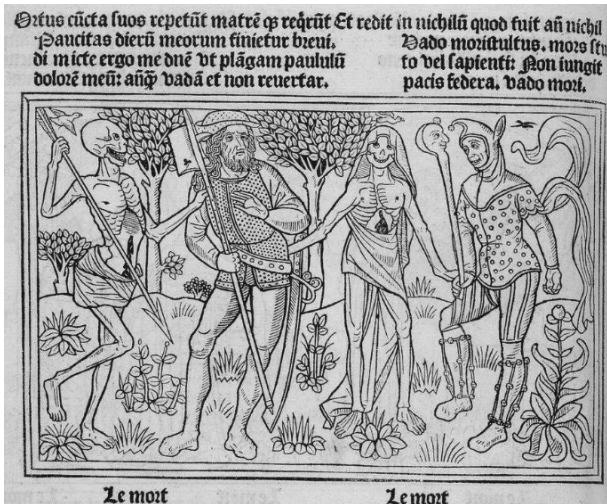 Ortus cũcta suos repetũt matrẽ qʒ reqͥrũt Et redit in nichilũ quod fuit añ nichil
Paucitas dierũ meorum finietur breui.
di micte ergo me dñe vt plãgam paululũ
dolorẽ meũ: añqʒ vadã et non reuertar.
Vado mori stultus. mors stu
to vel sapienti: Non iungit
pacis federa. vado mori.
Le mort
Le mort